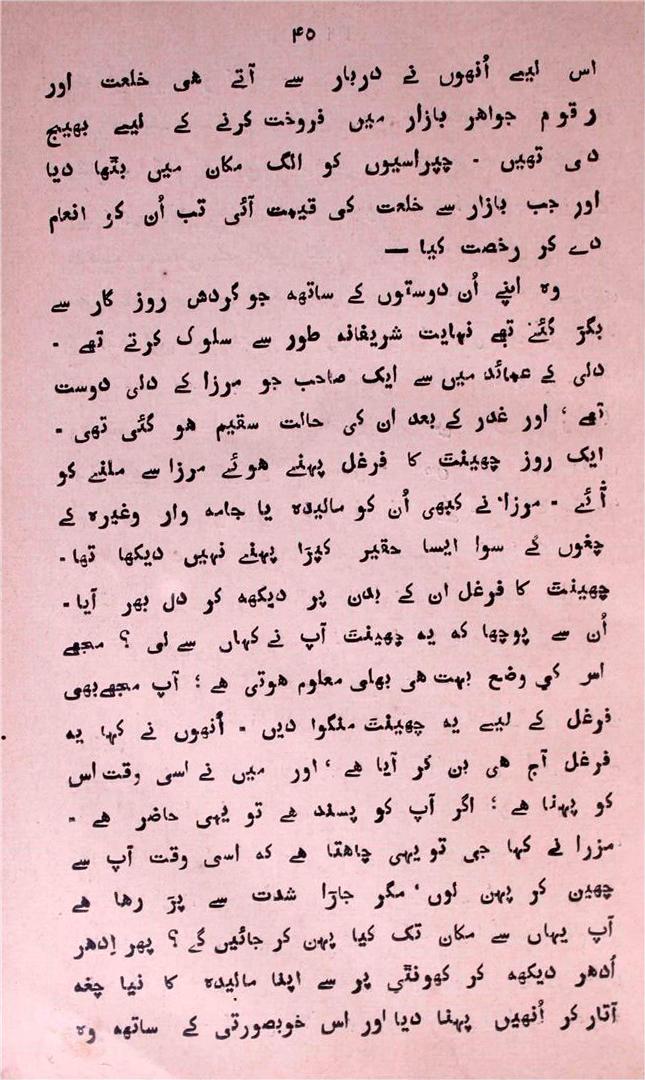 ۴۵
اس لیے اُنھوں نے دربار سے آتے ھی خلعت اور
رقوم جواھر بازار میں فروخت کرنے کے لیے بھیج
دی تھیں - چپراسیوں کو الگ مکان میں بٹھا دیا
اور جب بازار سے خلعت کی قیمت آئی تب اُن کو انعام
دے کر رخصت کیا —
وہ اپنے اُن دوستوں کے ساتھہ جو گردش روز گار سے
بگڑ گئے تھے نہایت شریفانہ طور سے سلوک کرتے تھے -
دلی کے عمائد میں سے ایک صاحب جو مرزا کے دلی دوست
تھے ' اور غدر کے بعد ان کی حالت سقیم ھو گئی تھی -
ایک روز چھینٹ کا فرغل پہنے ھوئے مرزا سے ملنے کو
آئے - مرزا نے کبھی اُن کو مالیدہ یا جامہ وار وغیرہ کے
چغوں کے سوا ایسا حقیر کپڑا پہنے نہیں دیکھا تھا -
چھینٹ کا فرغل ان کے بدن پر دیکھہ کر دل بھر آیا -
اُن سے پوچھا کہ یہ چھینٹ آپ نے کہاں سے لی ؟ مجھے
اس کی وضع بہت ھی بھلی معلوم ھوتی ھے ؛ آپ مجھےبھی
فرغل کے لیے یہ چھینٹ منگوا دیں - اُنھوں نے کہا یہ
فرغل آج ھی بن کر آیا ھے ' اور میں نے اسی وقت اس
کو پہنا ھے ؛ اگر آپ کو پسند ھے تو یہی حاضر ھے -
مزرا نے کہا جی تو یہی چاھتا ھے کہ اسی وقت آپ سے
چھین کر پہن لوں ' مگر جاڑا شدت سے پڑ رھا ھے
آپ یہاں سے مکان تک کیا پہن کر جائیں گے ؟ پھر اِدھر
اُدھر دیکھہ کر کھونٹی پر سے اپنا مالیدہ کا نیا چغہ
اُتار کر اُنھیں پہنا دیا اور اس خوبصورتی کے ساتھہ وہ